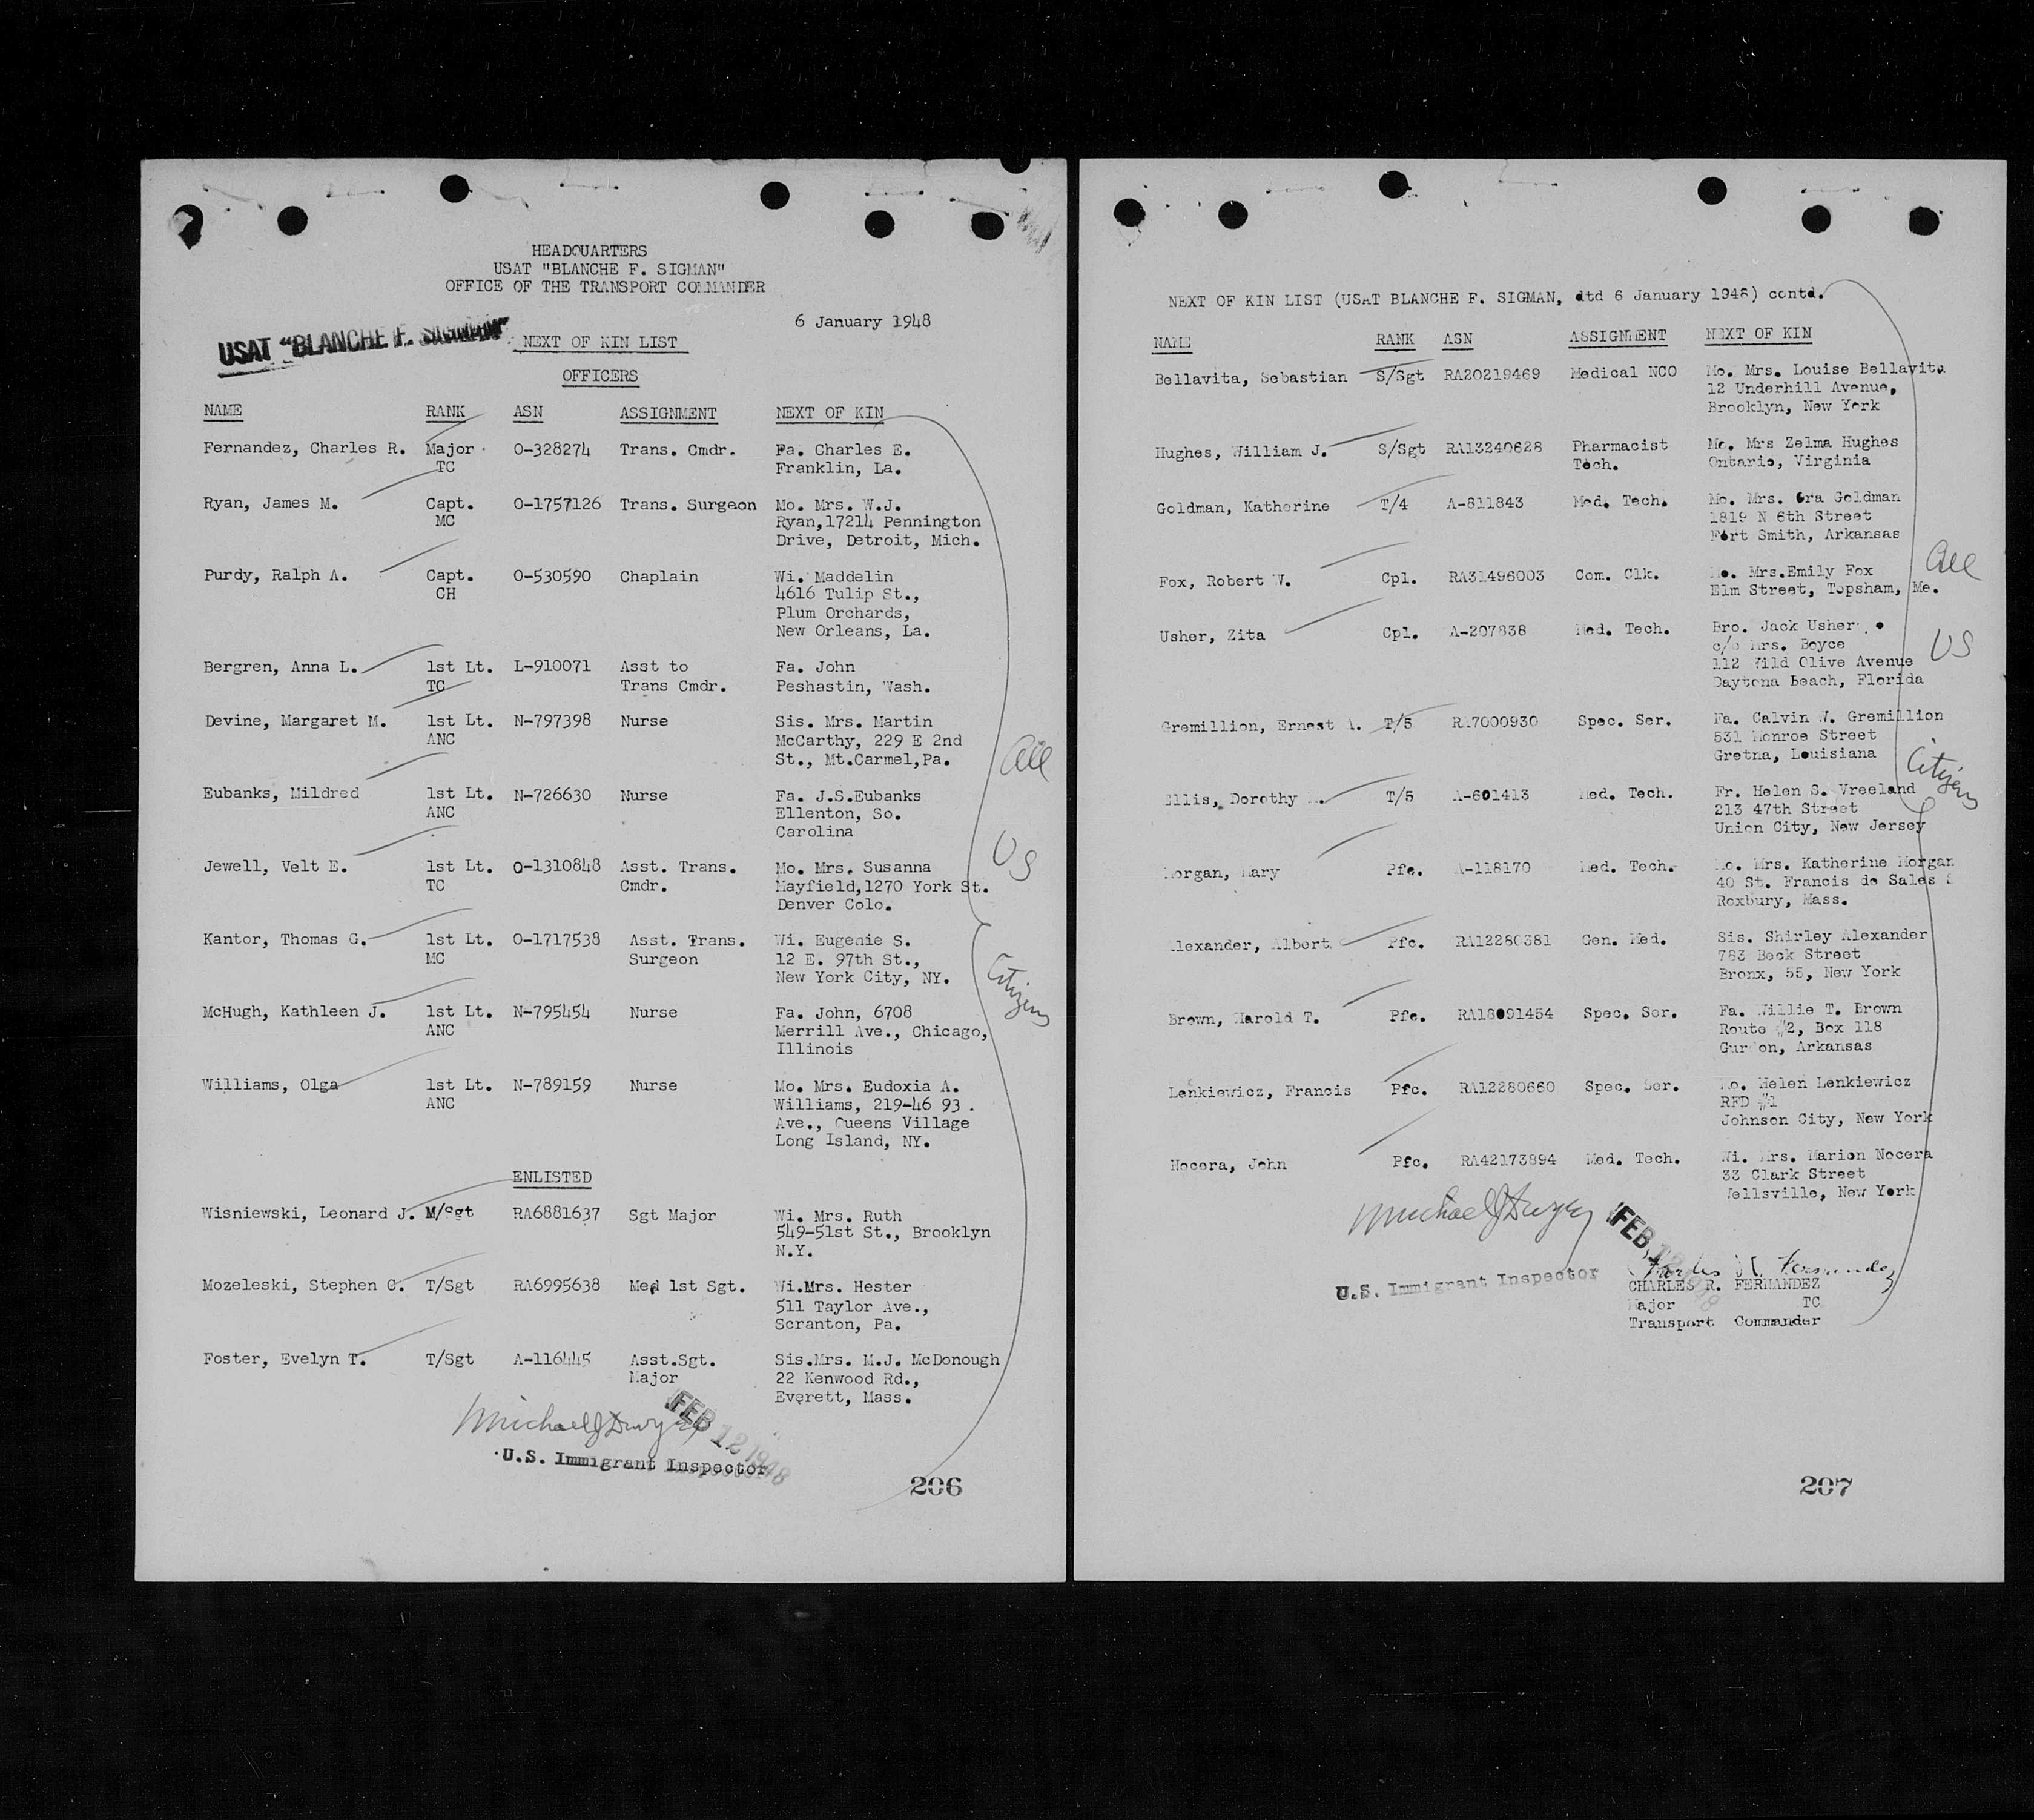 HEADQUARTERS
USAT "BLANCHE F. SIGMAN"
OFFICE OF THE TRANSPORT COMMANDER
6 January 1948
USAT "BLANCHE F. SIGMAN"
NEXT OF KIN LIST
OFFICERS
NAME RANK ASN ASSIGNMENT NEXT OF KIN
Fernandez, Charles R. Major O-328274 Trans. Cmdr. Fa. Charles E.
TC Franklin, La.
Ryan, James M. Capt. O-1757126 Trans. Surgeon Mo. Mrs. W.J.
MC Ryan,17214 Pennington
Drive, Detroit, Mich.
Purdy, Ralph A. Capt. O-530590 Chaplain Wi. Maddelin
CH 4616 Tulip St.,
Plum Orchards,
New Orleans, La.
Bergren, Anna L. 1st Lt. L-910071 Asst to Fa. John
TC Trans Cmdr. Peshastin, Wash.
Devine, Margaret M. 1st Lt. N-797398 Nurse Sis. Mrs. Martin
ANC McCarthy, 229 E 2nd
St., Mt.Carmel,Pa.
Eubanks, Mildred 1st Lt. N-726630 Nurse Fa. J.S.Eubanks
ANC Ellenton, So.
Carolina
Jewell, Velt E. 1st Lt. O-1310848 Asst. Trans. Mo. Mrs. Susanna
TC Cmdr. Mayfield,1270 York St.
Denver Colo.
Kantor, Thomas G. 1st Lt. O-1717538 Asst. Trans. Wi. Eugenie S.
MC Surgeon 12 E. 97th St.,
New York City, NY.
McHugh, Kathleen J. 1st Lt. N-795454 Nurse Fa. John, 6708
ANC Merrill Ave., Chicago,
Illinois
Williams, Olga 1st Lt. N-789159 Nurse Mo. Mrs. Eudoxia A.
ANC Williams, 219-46 93 .
Ave., Queens Village
Long Island, NY.
ENLISTED
Wisniewski, Leonard J. M/Sgt RA6881637 Sgt Major Wi. Mrs. Ruth
549-51st St., Brooklyn
N.Y.
Mozeleski, Stephen C. T/Sgt RA6995638 Med 1st Sgt. Wi.Mrs. Hester
511 Taylor Ave.,
Scranton, Pa.
Foster, Evelyn T. T/Sgt A-116445 Asst.Sgt. Sis.Mrs. M.J. McDonough
Major 22 Kenwood Rd.,
Everett, Mass.
All
US
Citizens
Michael J Dwyer
FEB 12 1948
U.S. Immigrant Inspector
206
NEXT OF KIN LIST (USAT BLANCHE F. SIGMAN, dtd 6 January 1948) contd.
NAME RANK ASN ASSIGNMENT NEXT OF KIN
Bellavita, Sebastian S/Sgt RA20219469 Medical NCO Mo. Mrs. Louise Bellavita
12 Underhill Avenue,
Brooklyn, New York
Hughes, William J. S/Sgt RA13240628 Pharmacist Mo. Mrs Zelma Hughes
Tech. Ontario, Virginia
Goldman, Katherine T/4 A-811843 Med. Tech. Mo. Mrs. Ora Goldman
1819 N 6th Street
Fort Smith, Arkansas
Fox, Robert W. Cpl. RA31496003 Com. Clk. Mo. Mrs.Emily Fox
Elm Street, Topsham, Me.
Usher, Zita Cpl. A-207838 Med. Tech. Bro. Jack Usher
c/o Mrs. Boyce
112 Wild Olive Avenue
Daytona Beach, Florida
Gremillion, Ernest A. T/5 RA7000930 Spec. Ser. Fa. Calvin W. Gremillion
531 Monroe Street
Gretna, Louisiana
Ellis, Dorothy T/5 A-601413 Med. Tech. Fr. Helen S. Vreeland
213 47th Street
Union City, New Jersey
Morgan, Mary Pfc. A-118170 Med. Tech. Mo. Mrs. Katherine Morgan
40 St. Francis de Sales S
Roxbury, Mass.
Alexander, Albert Pfc. RA12280381 Gen. Med. Sis. Shirley Alexander
783 Beck Street
Bronx, 55, New York
Brown, Harold T. Pfc. RA18091454 Spec. Ser. Fa. Willie T. Brown
Route #2, Box 118
Gurdon, Arkansas
Lenkiewicz, Francis Pfc. RA12280660 Spec. Ser. Mo. Helen Lenkiewicz
RFD #1
Johnson City, New York
Nocera, John Pfc. RA42173894 Med. Tech. Wi. Mrs. Marion Nocera
33 Clark Street
Wellsville, New York
All
US
Citizens
Michael J Dwyer
FEB 12 1948
U.S. Immigrant Inspector
Charles R. Fernandez
CHARLES R. FERNANDEZ
Major TC
Transport Commander
207